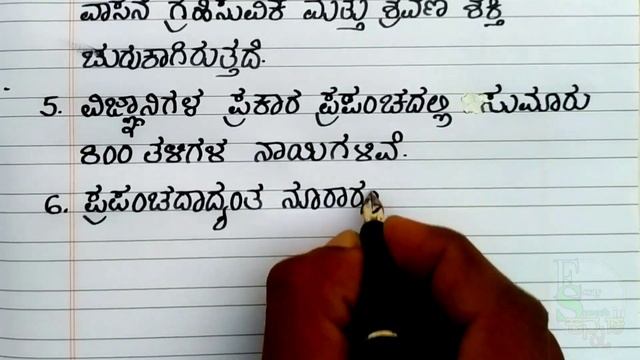 ವಾಸನೆ ಗ್ರಹಿಸುವಿಕೆ ಮತ್ತು ಶ್ರವಣ ಶಕ್ತಿ
ಚುರುಕಾಗಿರುತ್ತದೆ.
5. ವಿಜ್ಞಾನಿಗಳ ಪ್ರಕಾರ ಪ್ರಪಂಚದಲ್ಲಿ ಸುಮಾರು
800 ತಳಿಗಳ ನಾಯಿಗಳಿವೆ.
6. ಪ್ರಪಂಚದಾದ್ಯಂತ ನೂರಾರು